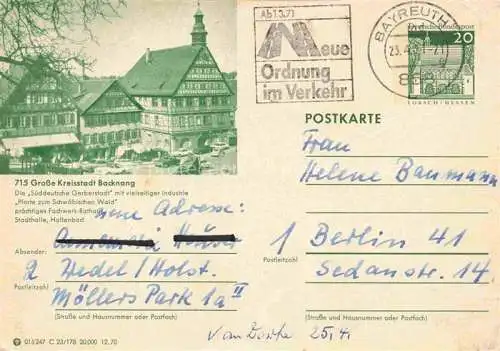 Ab 1.3.71
Neue
Ordnung
im Verkehr
BAYREUTH
Deutsche Bundespost
20
LORSCH/HESSEN
POSTKARTE
715 Große Kreisstadt Backnang
Die „Süddeutsche Gerberstadt" mit vielseitiger Industrie
„Pforte zum Schwäbischen Wald"
prächtiges Fachwerk-Rathaus
Stadthalle, Hallenbad
neue Adresse:
Absender:
2 Wedel/Holst.
Postleitzahl
Möllers Park 1a II
(Straße und Hausnummer oder Postfach)
Frau
Helene Baumann
1 Berlin 41
Postleitzahl
Sedanstr. 14
(Straße und Hausnummer oder Postfach)
25.4.
C 23/178 20.000 12.70